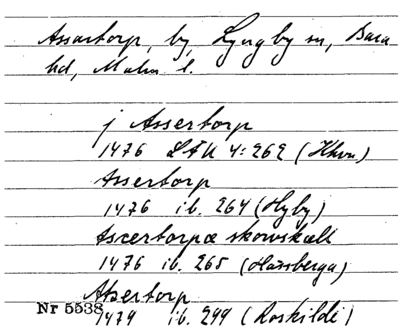 Assartorp, by, Lyngby sn, Bara
hd, Malm l.
j Assertorp
1476 LÄU 4:262 (Hhvn)
Assertorp
1476 ib. 264 (Hyby)
Ascertorpæ skowskæll
1476 ib. 265 (Hassberga)
Atsertorp
Nr 5538
1479 ib. 299 (Roskilde)